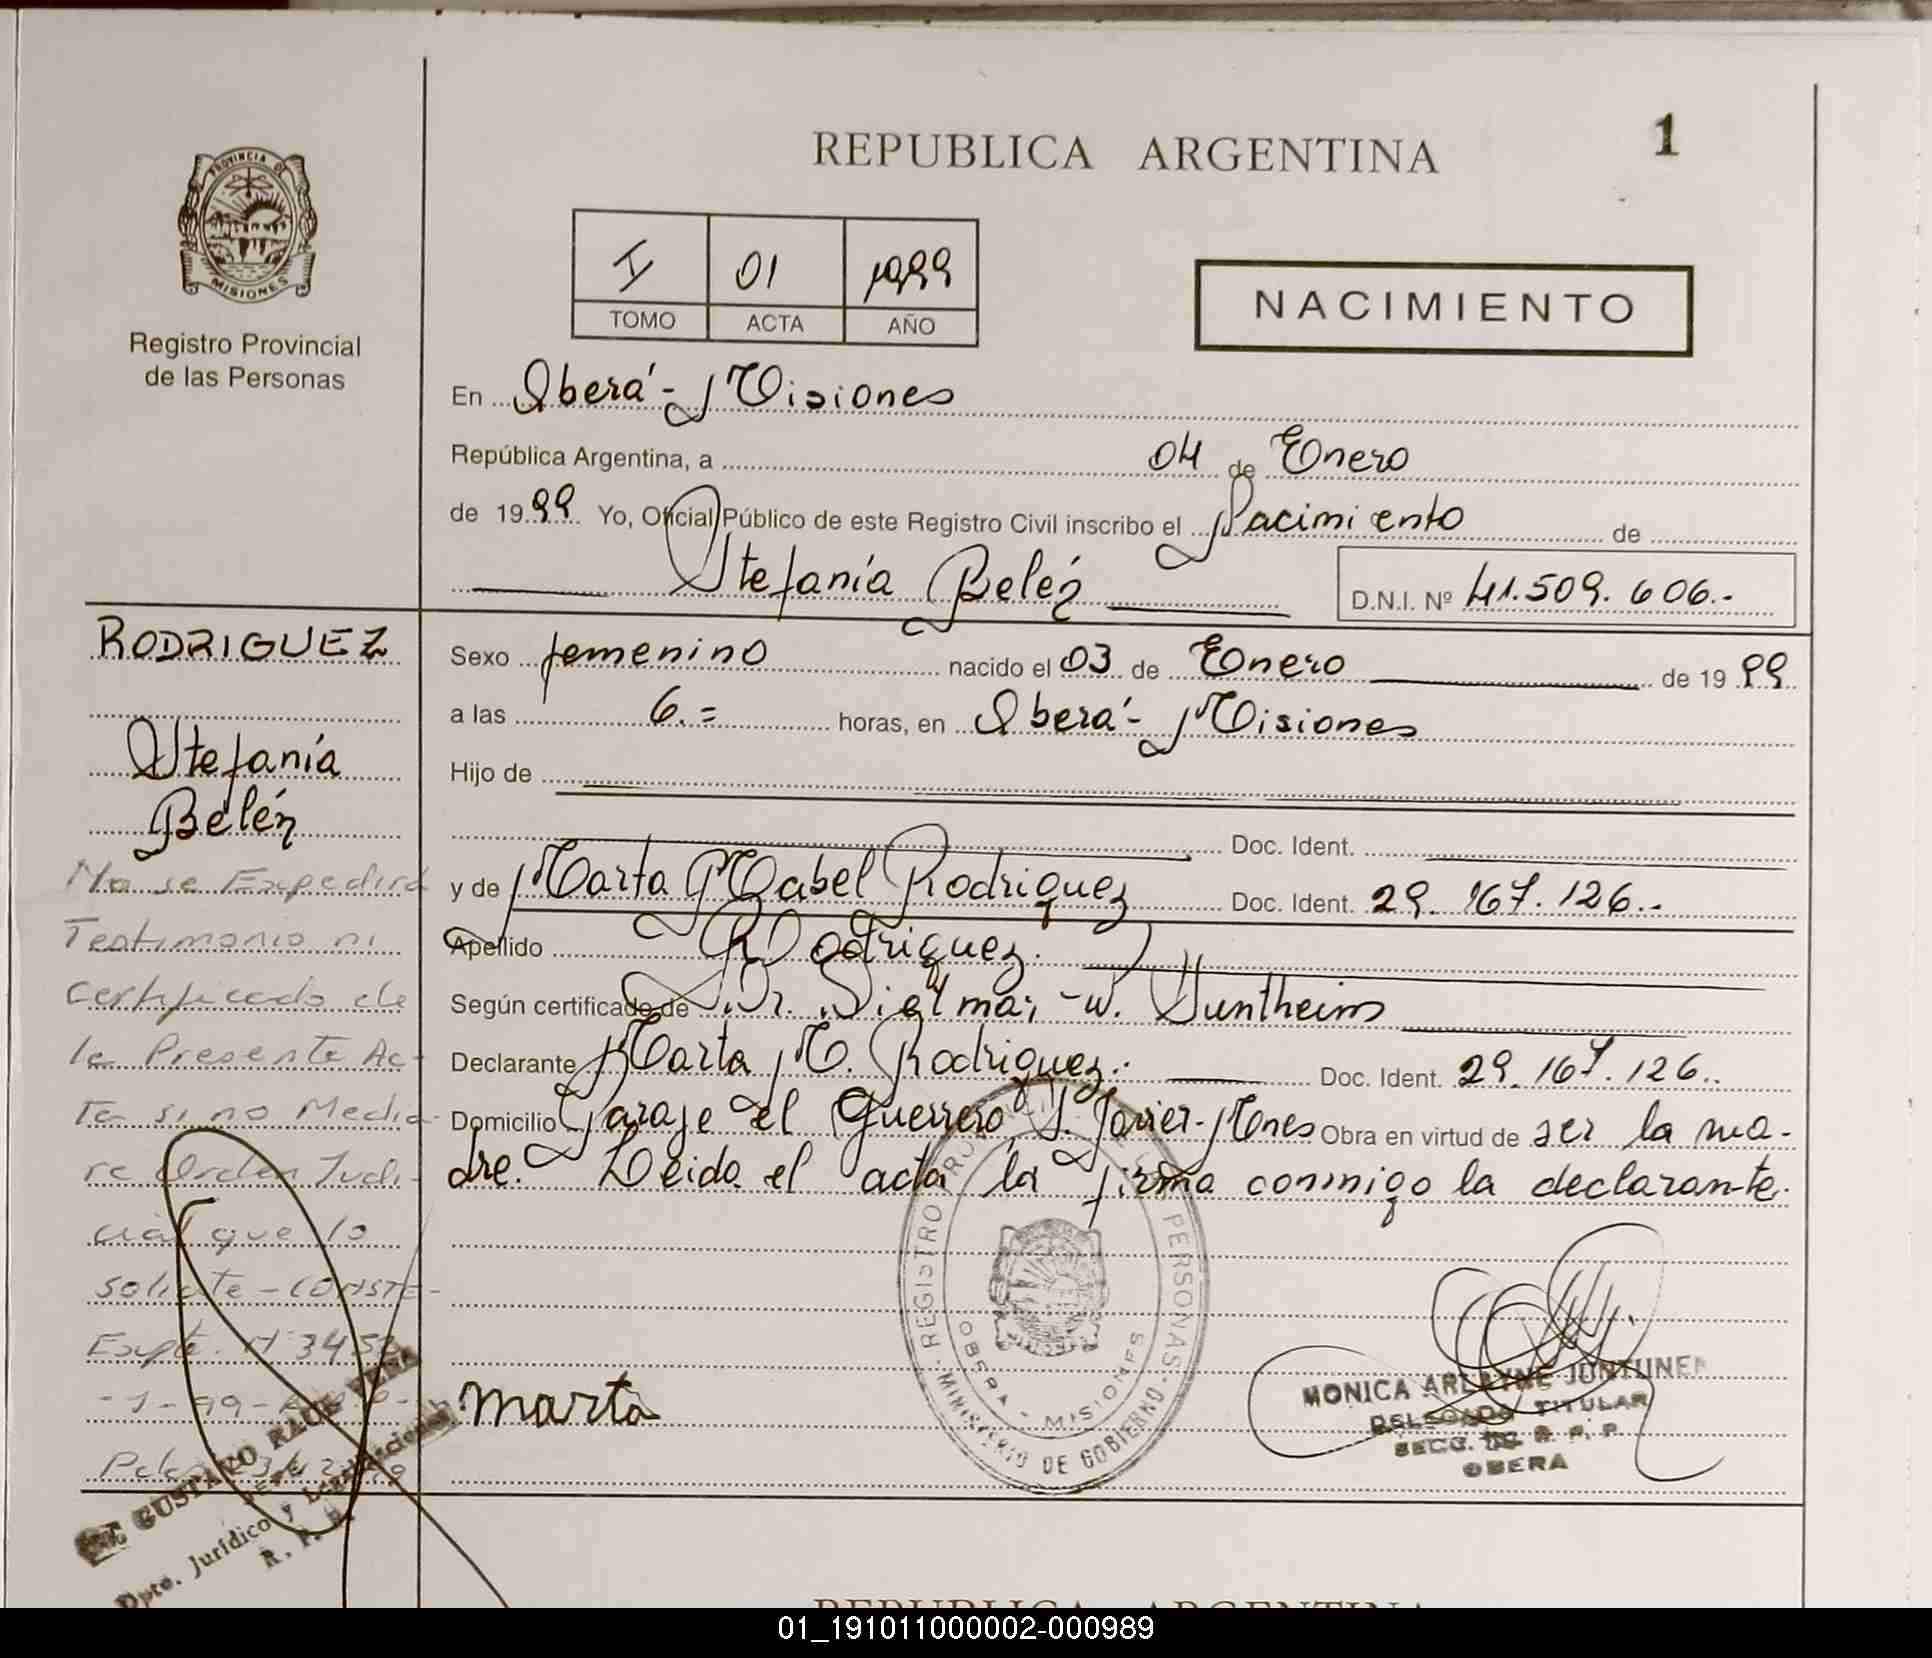 REPUBLICA ARGENTINA
1
PROVINCIA DE
MISIONES
Registro Provincial
de las Personas
I 01 1999
TOMO ACTA AÑO
NACIMIENTO
En Oberá - Misiones
República Argentina, a 04 de Enero
de 1999 Yo, Oficial Público de este Registro Civil inscribo el Nacimiento de
Stefanía Belén
D.N.I. Nº 41.509.606.-
RODRIGUEZ
Stefanía
Belén
Sexo femenino nacido el 03 de Enero de 1999
a las 6.= horas, en Oberá - Misiones
Hijo de
Doc. Ident.
y de Marta Mabel Rodriguez Doc. Ident. 29.167.126.-
Apellido Rodriguez.
Según certificado de Dr. W.
Declarante Marta M. Rodriguez.- Doc. Ident. 29.167.126..
Domicilio Paraje el Guerrero S. Javier-Mnes Obra en virtud de ser la ma-
dre. Leida el acta la firma conmigo la declarante.
No se Expedirá
Testimonio ni
Certificado de
la Presente Ac-
ta si no Media-
re Orden Judi-
cial que lo
solicite - CONSTE -
Expte. Nº 345
marta
REGISTRO PERSONAS - MINISTERIO DE GOBIERNO
OBERA - MISIONES
MONICA ARLAYNE JUNTUNEN
DELEGADO TITULAR
SECC. R. P. P.
OBERA
GUSTAVO RAUL
Dpto. Jurídico y
R. P. P.
REPUBLICA ARGENTINA
01_191011000002-000989